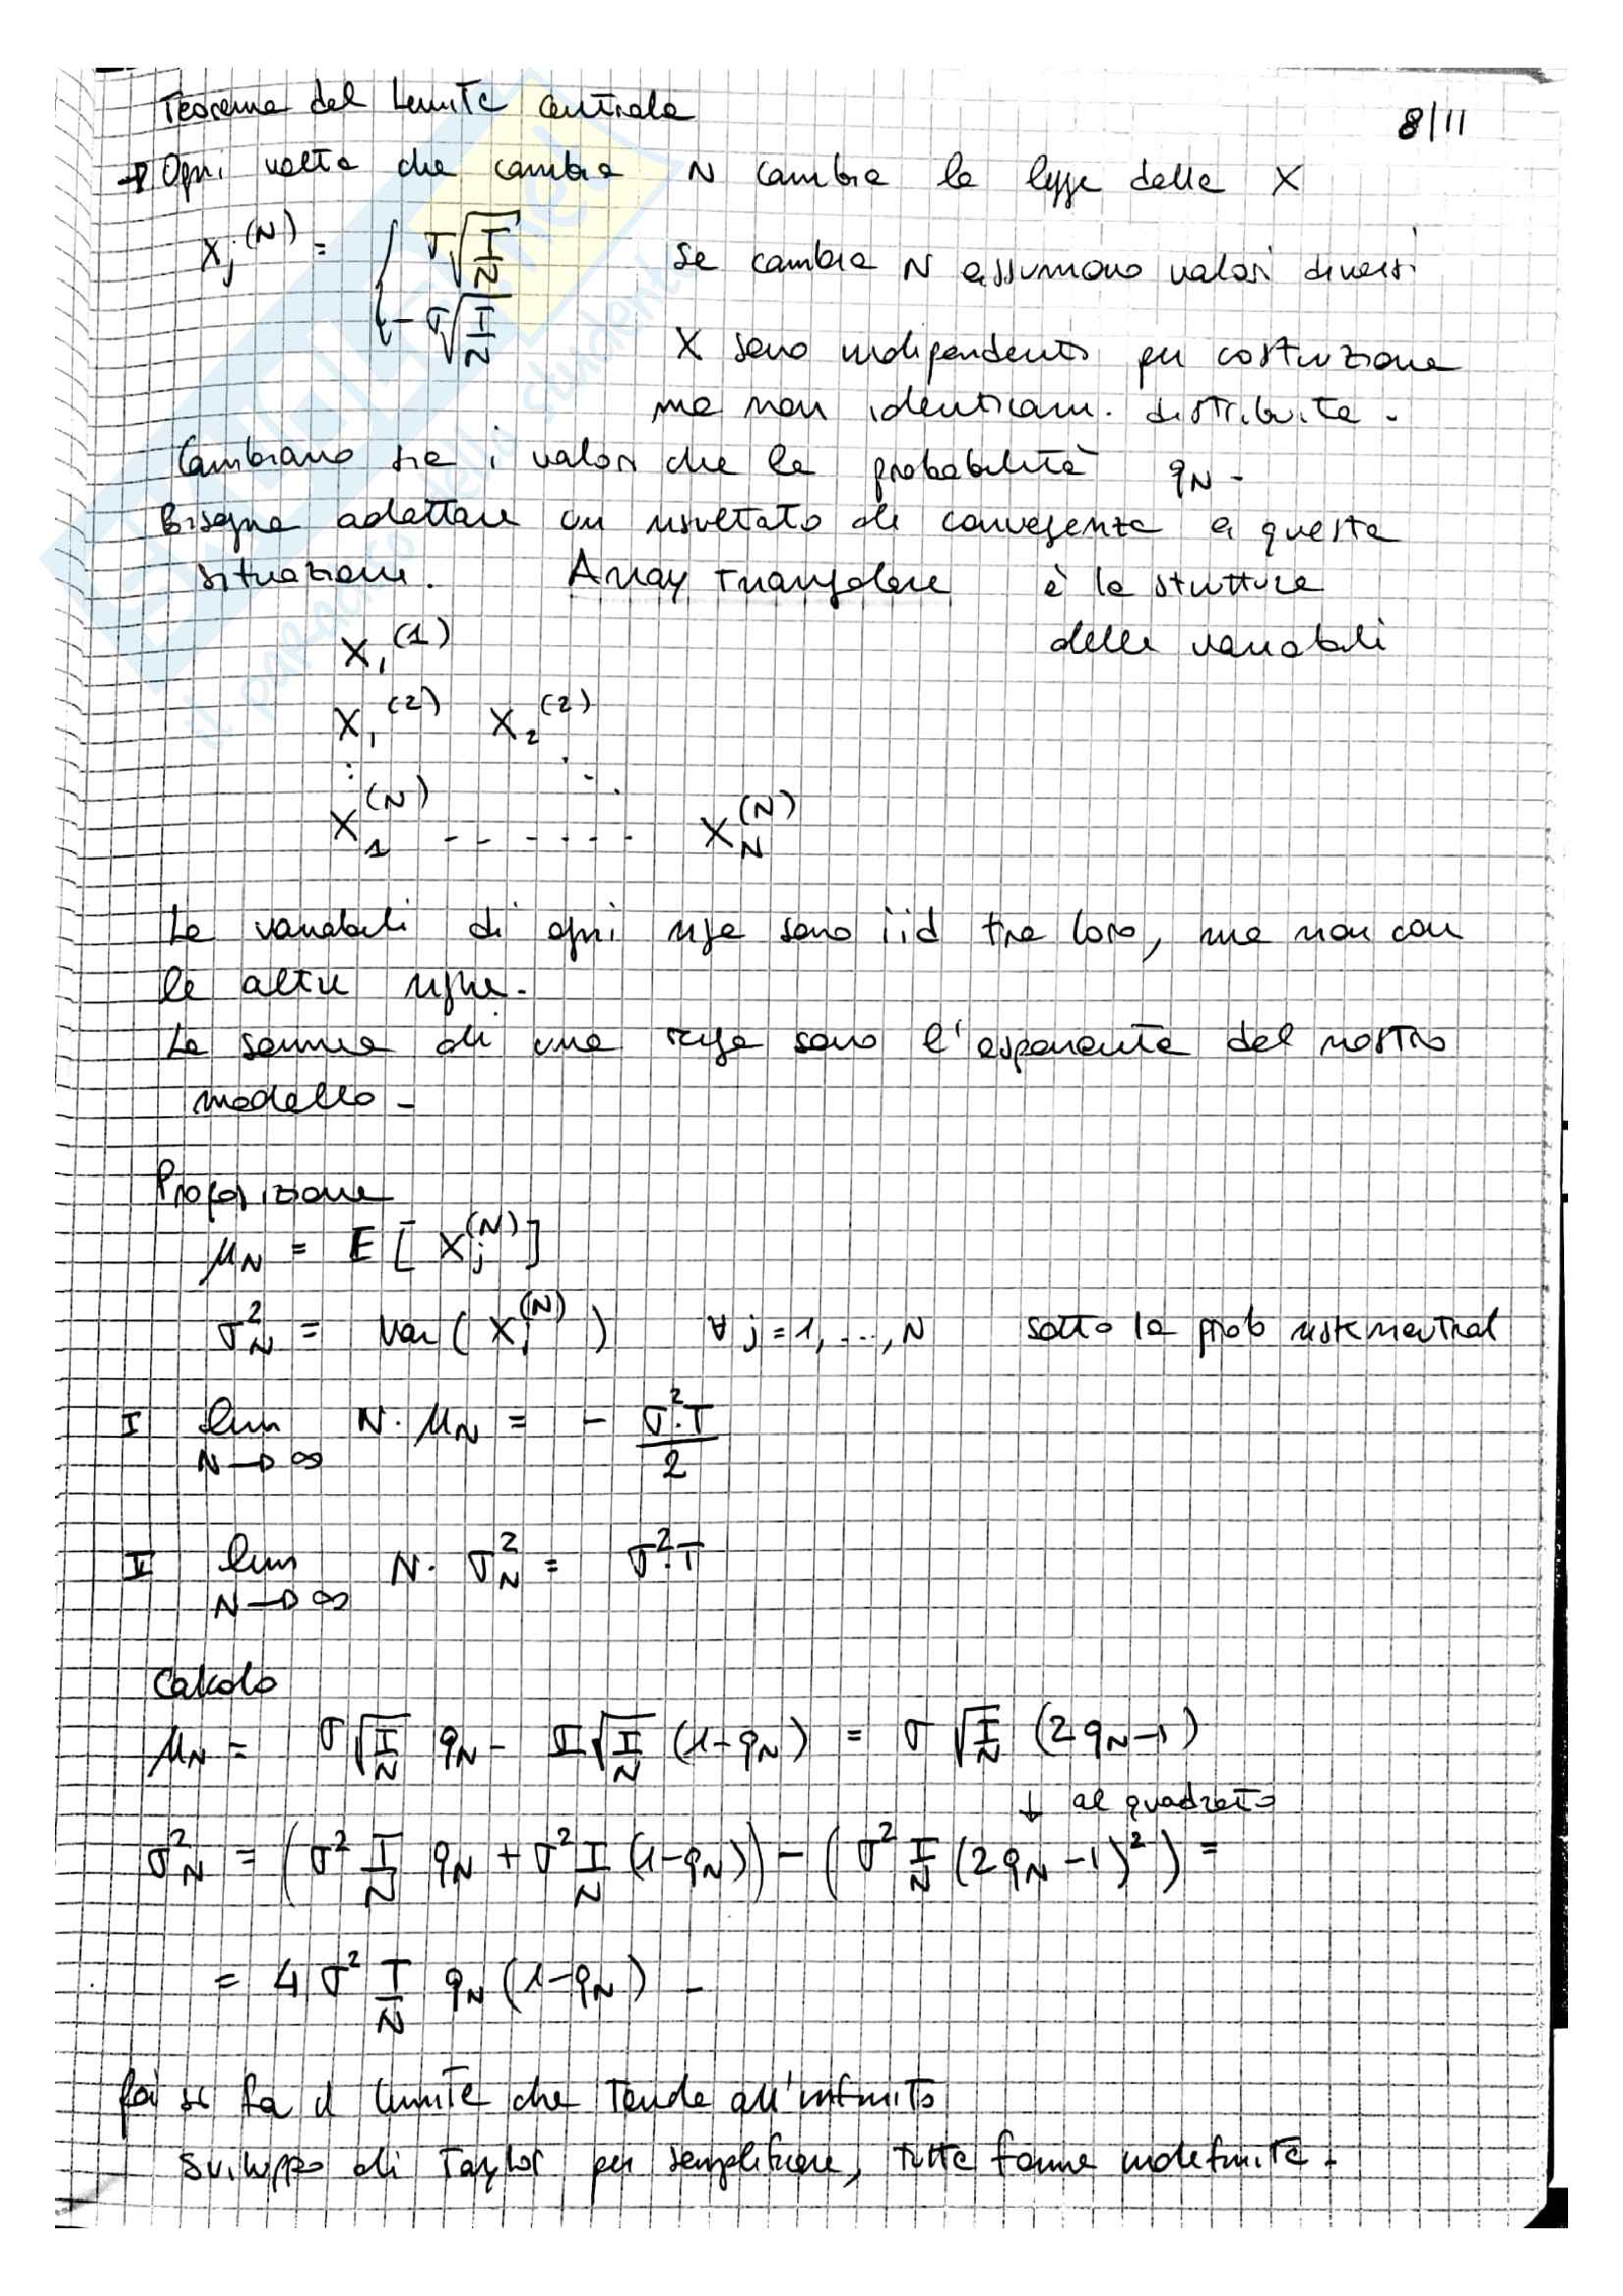 Teorema del Limite Centrale
8/11
→ Ogni volta che cambia N cambia la legge delle X
X_j^(N) = { σ√(T/N) Se cambia N assumono valori diversi
-σ√(T/N)
X sono indipendenti per costruzione
ma non identicam. distribuite.
Cambiano sia i valori che la probabilità q_N.
Bisogna adattare un risultato di convergenza a questa
situazione. Array Triangolare è la struttura
delle variabili
X_1^(1)
X_1^(2) X_2^(2)
X_1^(N) - - - - - - X_N^(N)
Le variabili di ogni riga sono iid tra loro, ma non con
le altre righe.
La somma di una riga sono l'esponente del nostro
modello -
Proposizione
μ_N = E[X_j^(N)]
σ_N^2 = Var(X_j^(N)) ∀ j=1,...,N sotto la prob risk neutral
I lim N→∞ N·μ_N = - σ^2·T / 2
II lim N→∞ N·σ_N^2 = σ^2·T
Calcolo
μ_N = σ√(T/N) q_N - σ√(T/N) (1-q_N) = σ√(T/N) (2q_N-1)
↓ al quadrato
σ_N^2 = (σ^2 T/N q_N + σ^2 T/N (1-q_N)) - (σ^2 T/N (2q_N-1)^2) =
= 4σ^2 T/N q_N (1-q_N) -
Poi si fa il limite che tende all'infinito
Sviluppo di Taylor per semplificare, tutte forme indefinite.
il paradiso dello studente